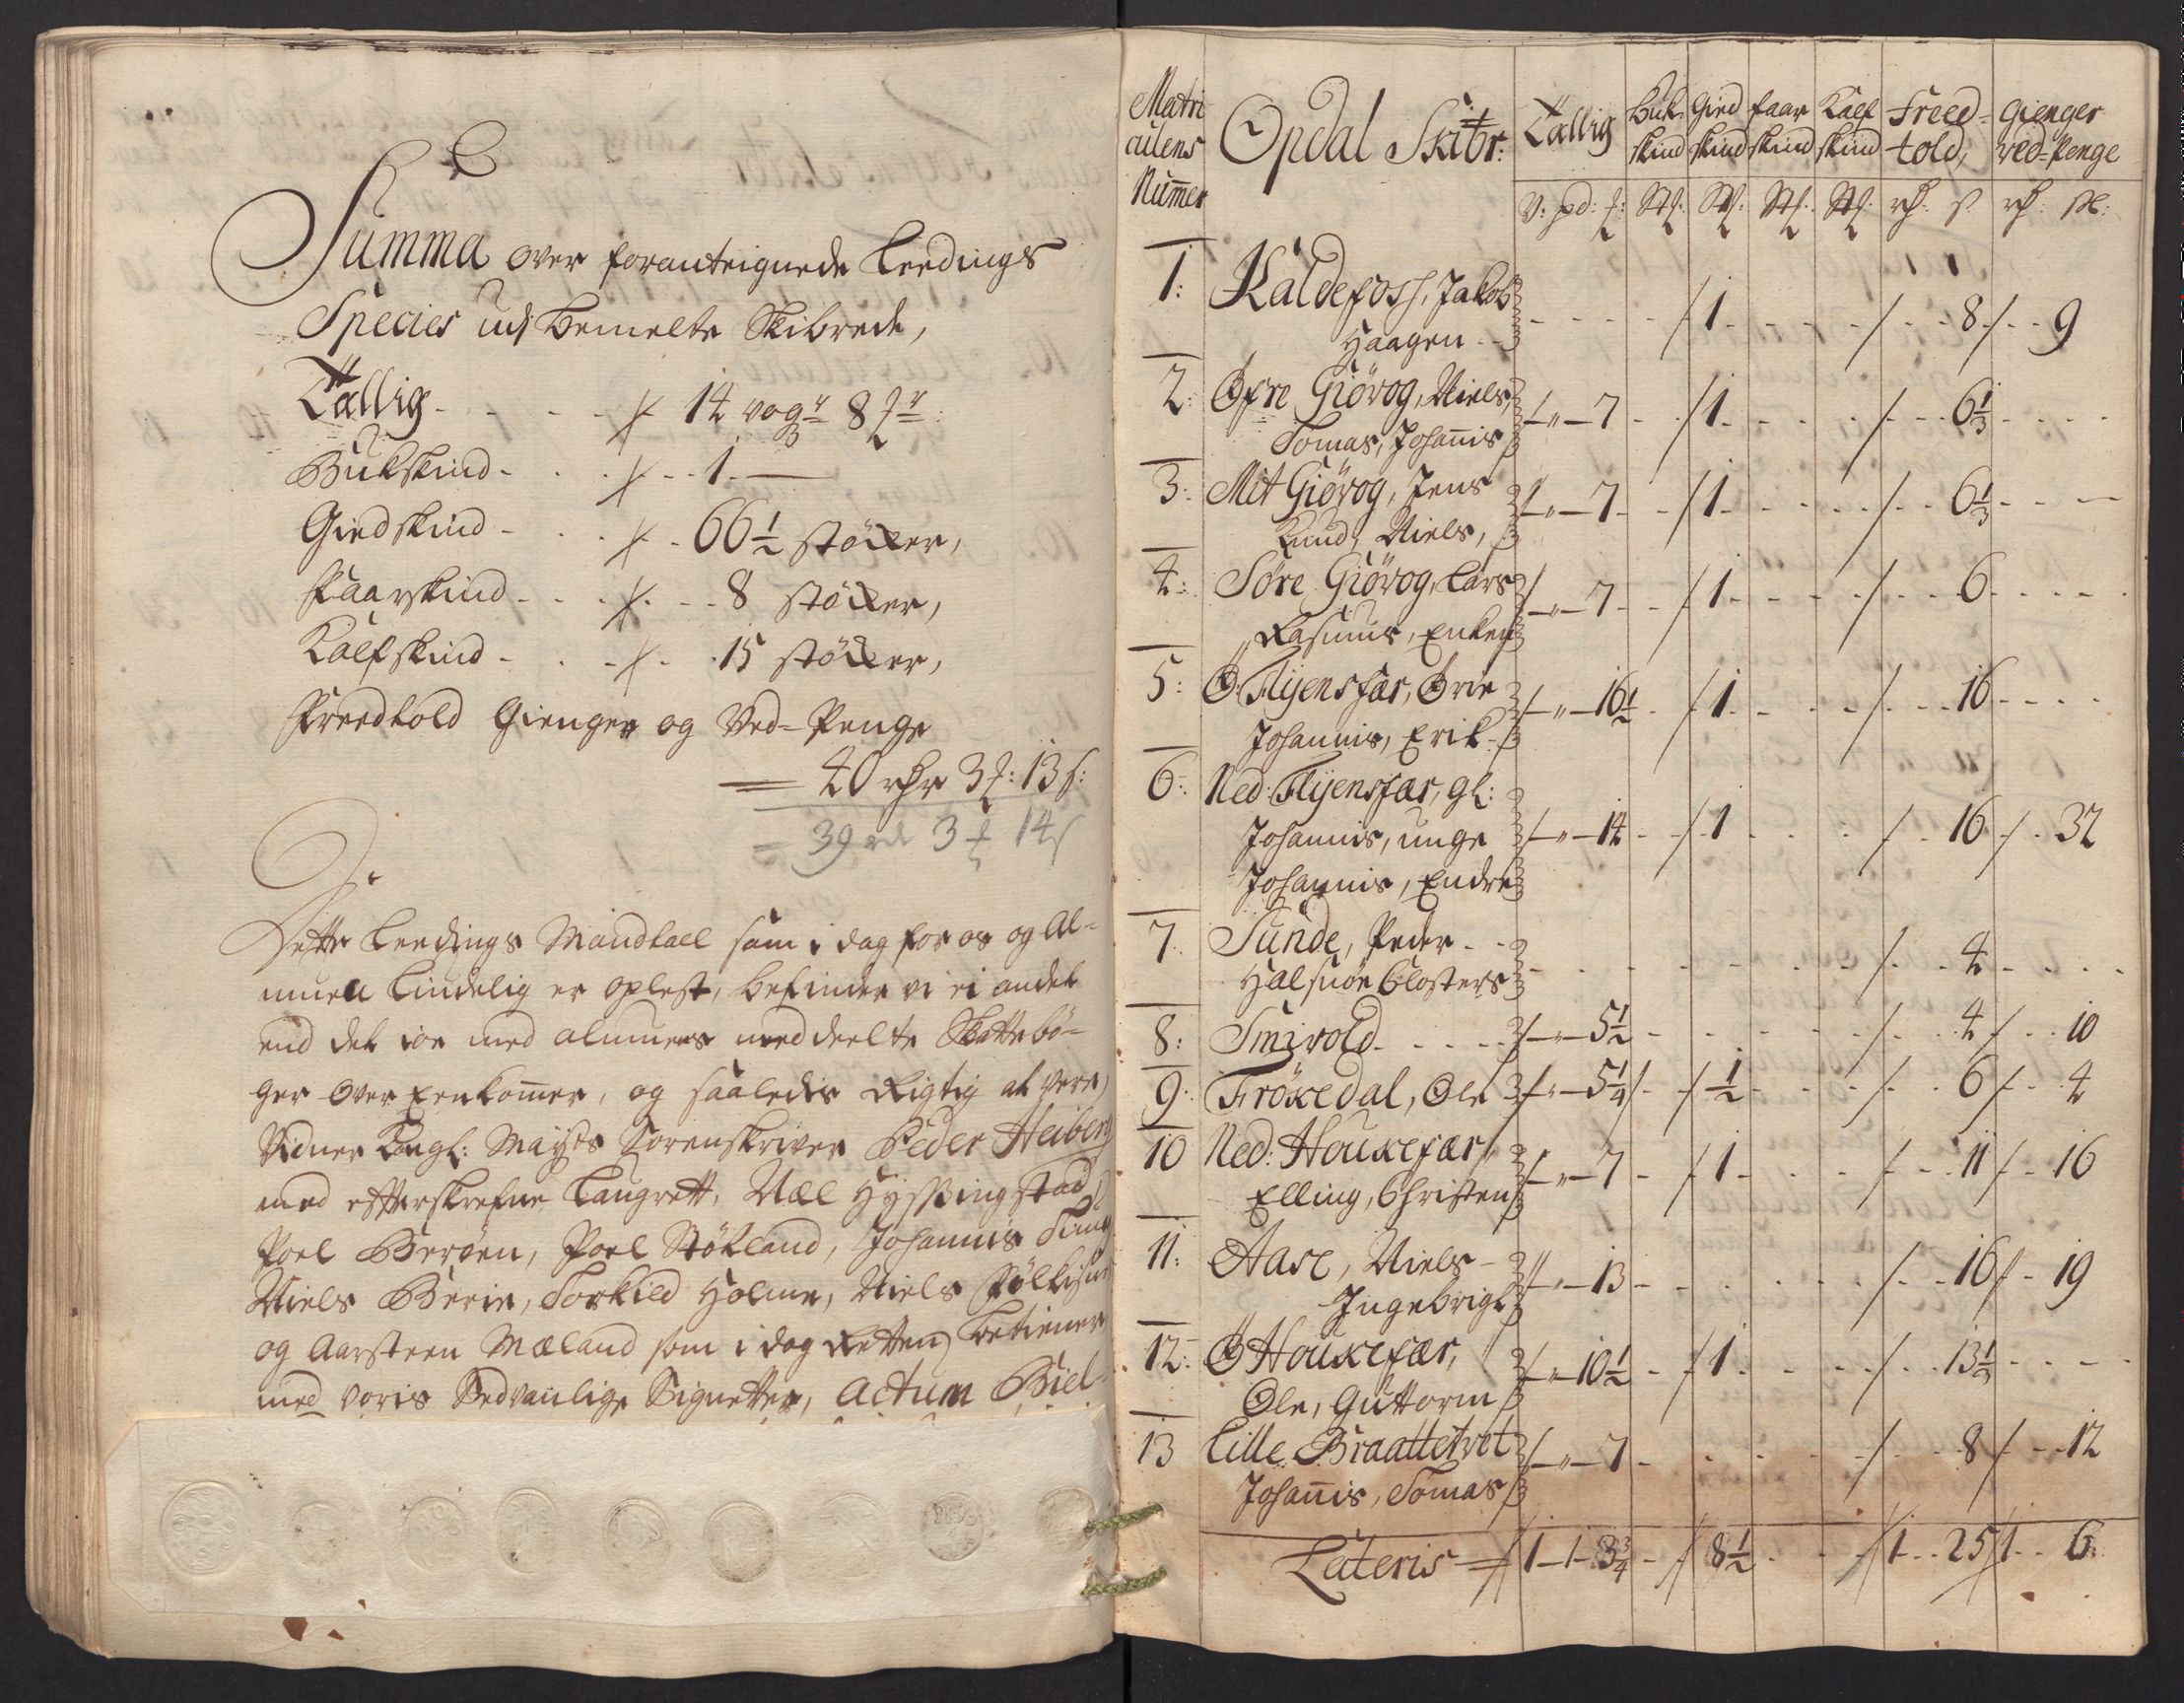 Summa over foranteignede Leedings
Species udj bemelte Skibrede,
Tallig - - - - 14 vog:r 8 ℔r:
Bukskind - - - - 1 —
Giedskind - - - - 66½ støcker,
Faarskind - - - - 8 støcker,
Kalfskind - - - - 15 støcker,
Freedtold Gienger og Ved-Penge
= 40 rdr 3 ℔: 13 s:
= 39 rd 3 ℔ 14 s
Dette Leedings Mandtall som i dag for os og Al-
muen tindelig er oplest, befinder vi ei andet
end det joe med almuens meddeelte Skattebö-
ger over Eenkommer, og saaledis Rigtig at være,
Vidner Kongl: Mayts Sorenskriver Peder Heiberg
med efterskrefne Laugrett,
Poel Berøen, Poel Støkland, Johannis
Niels Berie, Torkild Holme, Niels
og Aarsteen Mæland som i dag Retten betiener
med voris Sedvanlige Signetter, Actum
Matri
culens
Nummer
Opdal Skibr:
Tallig
Buk
skind
Gied
skind
faar
skind
Kalf
skind
Freed=
told,
Gienger
ved=Penge
V: pd: ℔: St: St: St: St: rd: s. rd: sl:
1: Kaldefoss, Jakob
Haagen - - 1 - - 8 - - 9
2: Øfre Giövog, Niels,
Tomas, Johannis - 7 - 1 - - 6⅓
3: Mit Giövog, Jens
Knud, Niels, - 7 - 1 - - 6⅓
4: Søre Giövog, Lars
Rasmus, Enken - 7 - 1 - - 6
5: Ö: Flyensfær, Brie
Johannis, Erik - 16½ - 1 - - 16
6: Ned: Flyensfær, gl:
Johannis, unge - 14 - 1 - - 16 - 32
Johannis, Endre
7. Sunde, Peder - -
Halsnøe Closters - - 4
8: Smivold - - - - 5½ - - 4 - - 10
9: Fröxedal, Ole - 5¼ - ½ - - 6 - - 4
10 Ned: Houxefær,
Elling, Christen - 7 - 1 - - 11 - 16
11: Aase, Niels -
Ingebrigt - 13 - - 16 - 19
12: Ö Houxefær,
Ole, Guttorm - 10½ - 1 - - 13½
13 Lille Braattetvet
Johannis, Tomas - 7 - - 8 - - 12
Lateris = 1 - 1 - 3¾ - 8½ - - 1 - - 25 1 - - 6